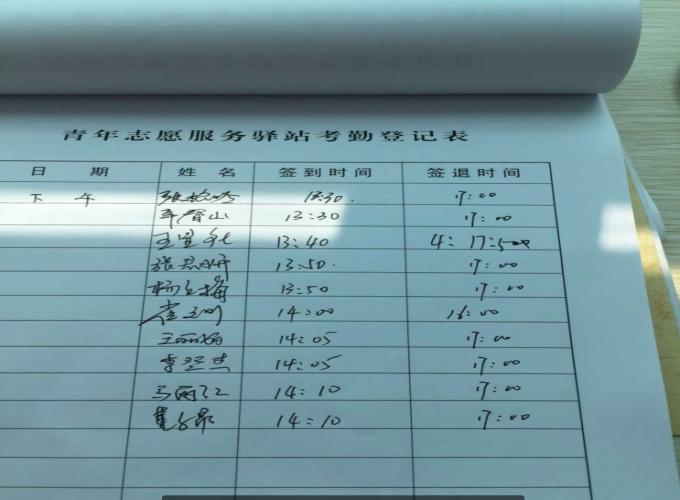 青年志愿服务驿站考勤登记表
日 期 姓 名 签到时间 签退时间
下 午 张 13:30. 17:00
山 13:30 17:00
王 13:40 4: 17:500
张 妍 13:50. 17:00
杨 梅 13:50 17:00
崔 14:00 16:00
王丽娟 14:05 17:00
李 杰 14:05 17:00
马丽红 14:10 17:00
14:10 17:00